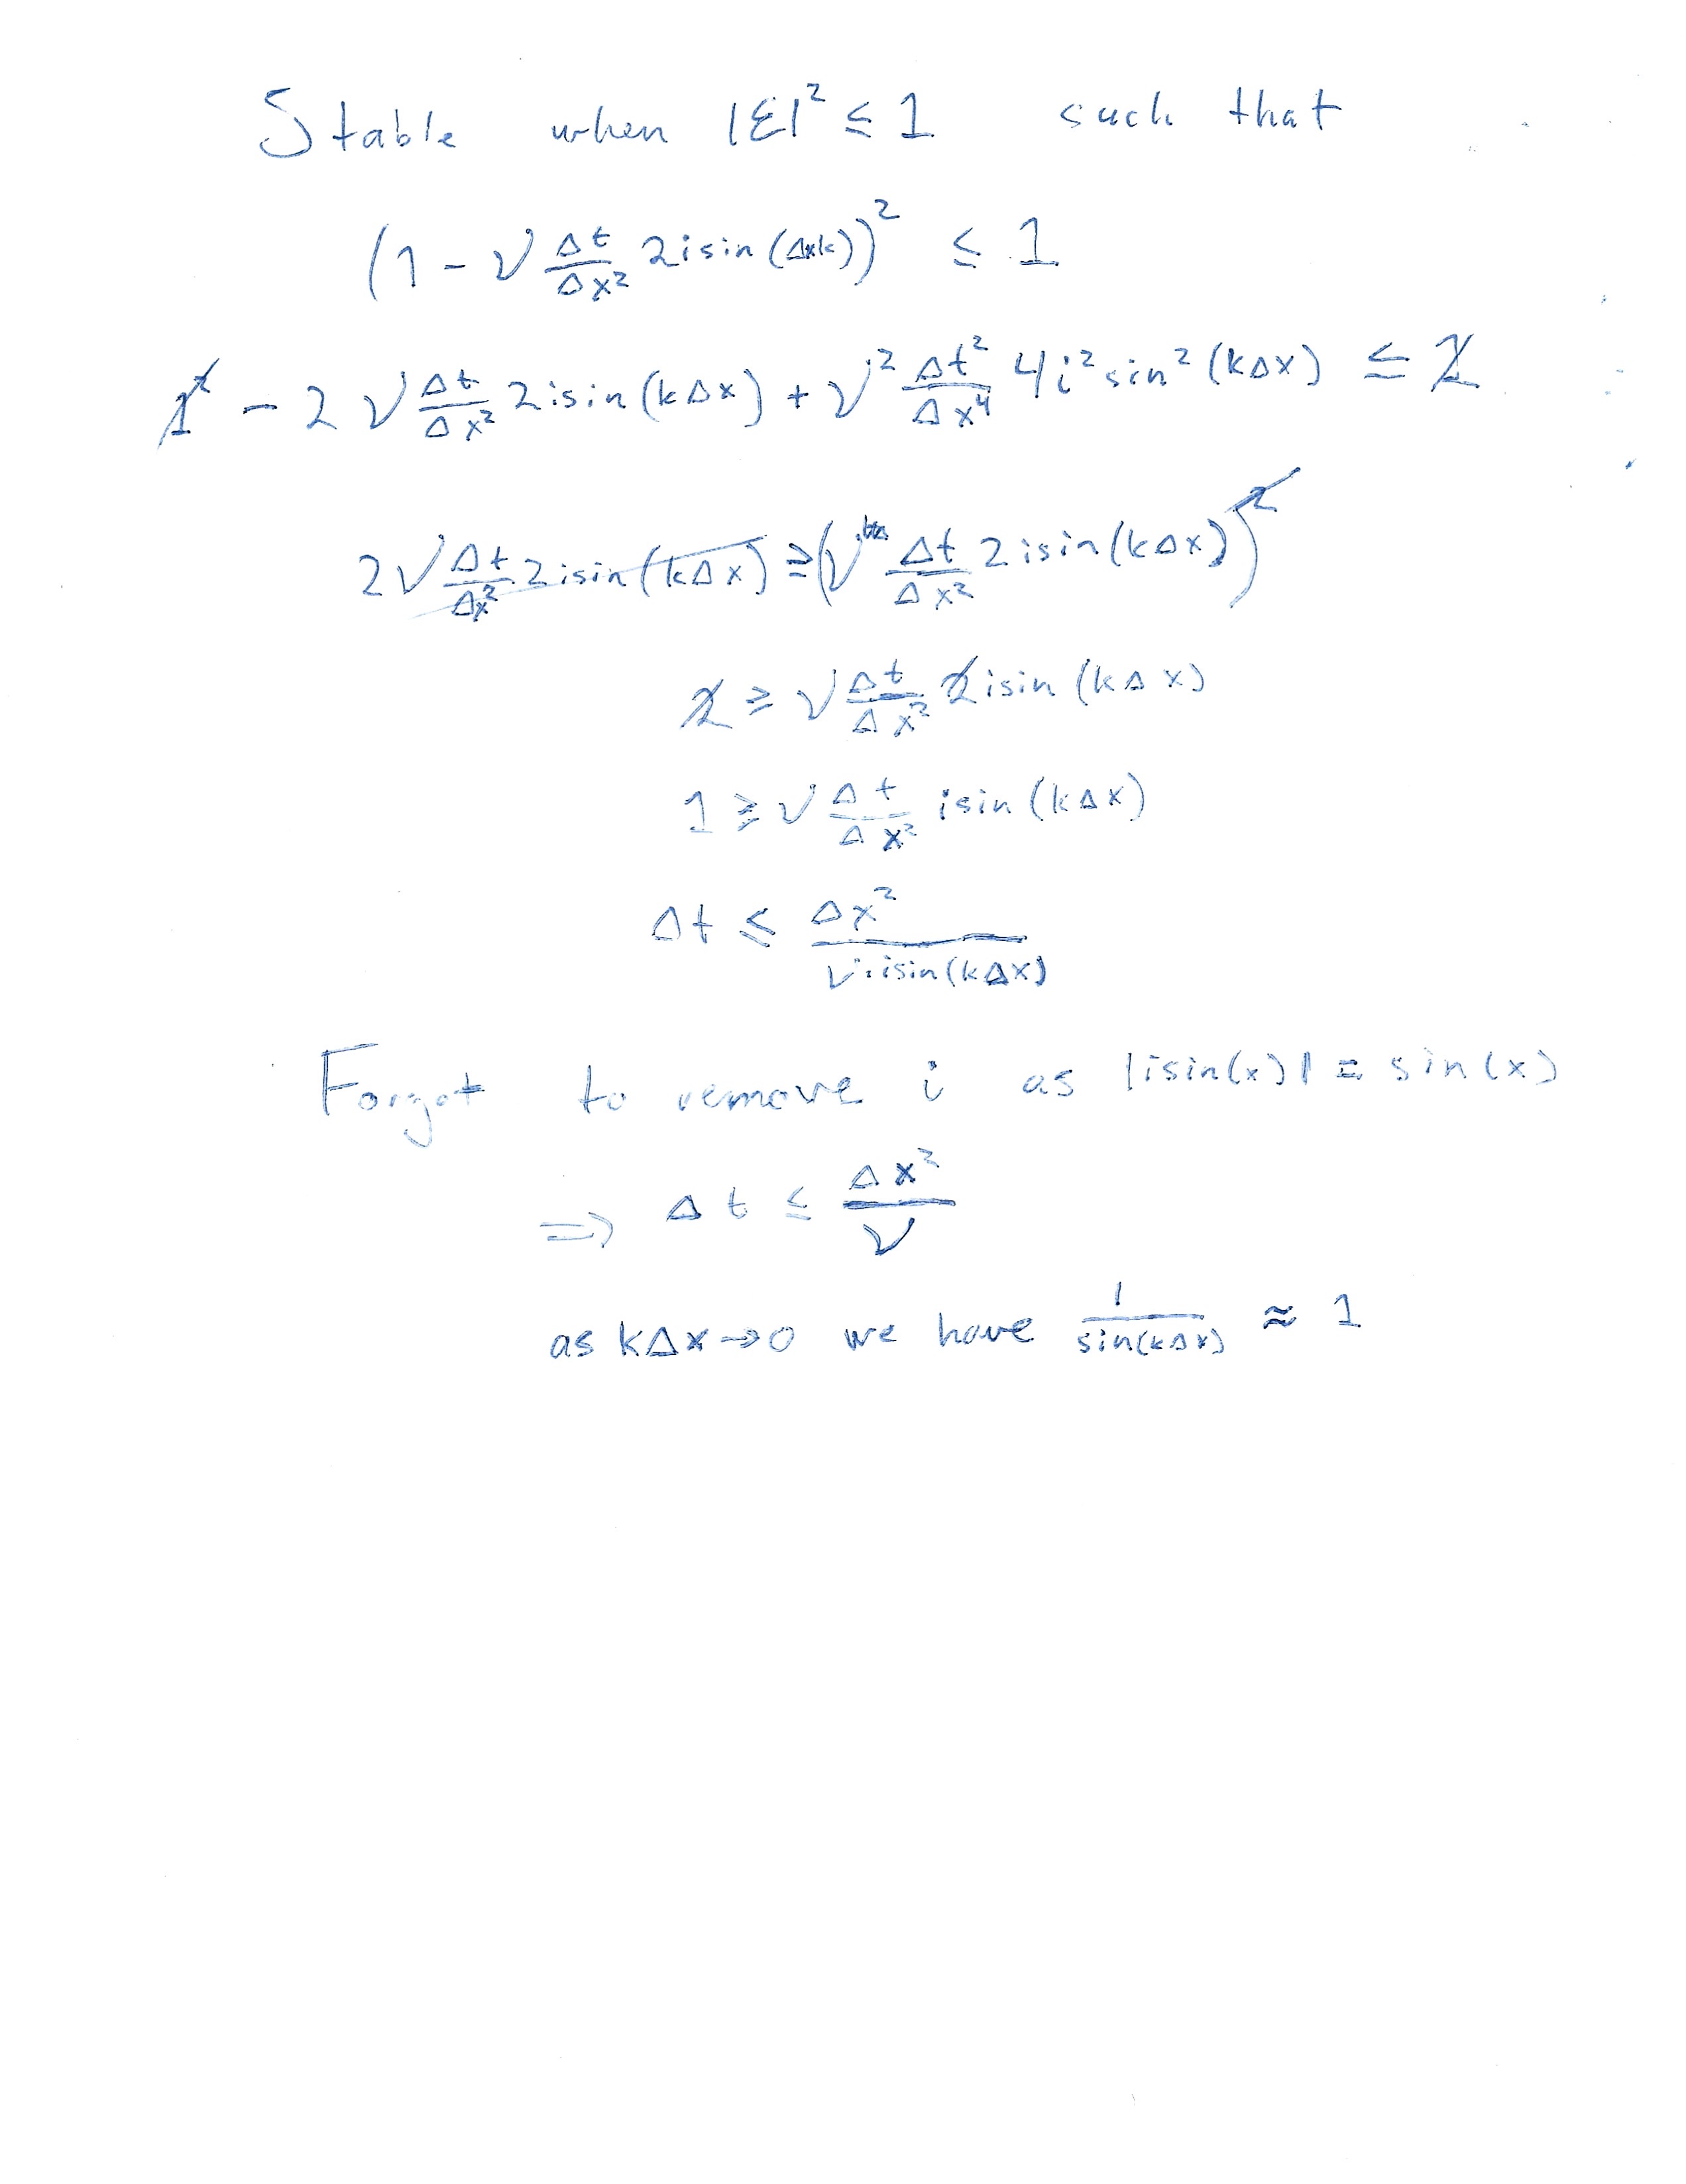 Stable when |ε|² ≤ 1 such that
(1 - ν Δt/Δx² 2isin(Δxk))² ≤ 1
1² - 2ν Δt/Δx² 2isin(kΔx) + ν² Δt²/Δx⁴ 4i²sin²(kΔx) ≤ 1
2ν Δt/Δx² 2isin(kΔx) ≥ (ν Δt/Δx² 2isin(kΔx))²
2 ≥ ν Δt/Δx² 2isin(kΔx)
1 ≥ ν Δt/Δx² isin(kΔx)
Δt ≤ Δx²/ν·isin(kΔx)
Forgot to remove i as |isin(x)| = sin(x)
⇒ Δt ≤ Δx²/ν
as kΔx→0 we have 1/sin(kΔx) ≈ 1